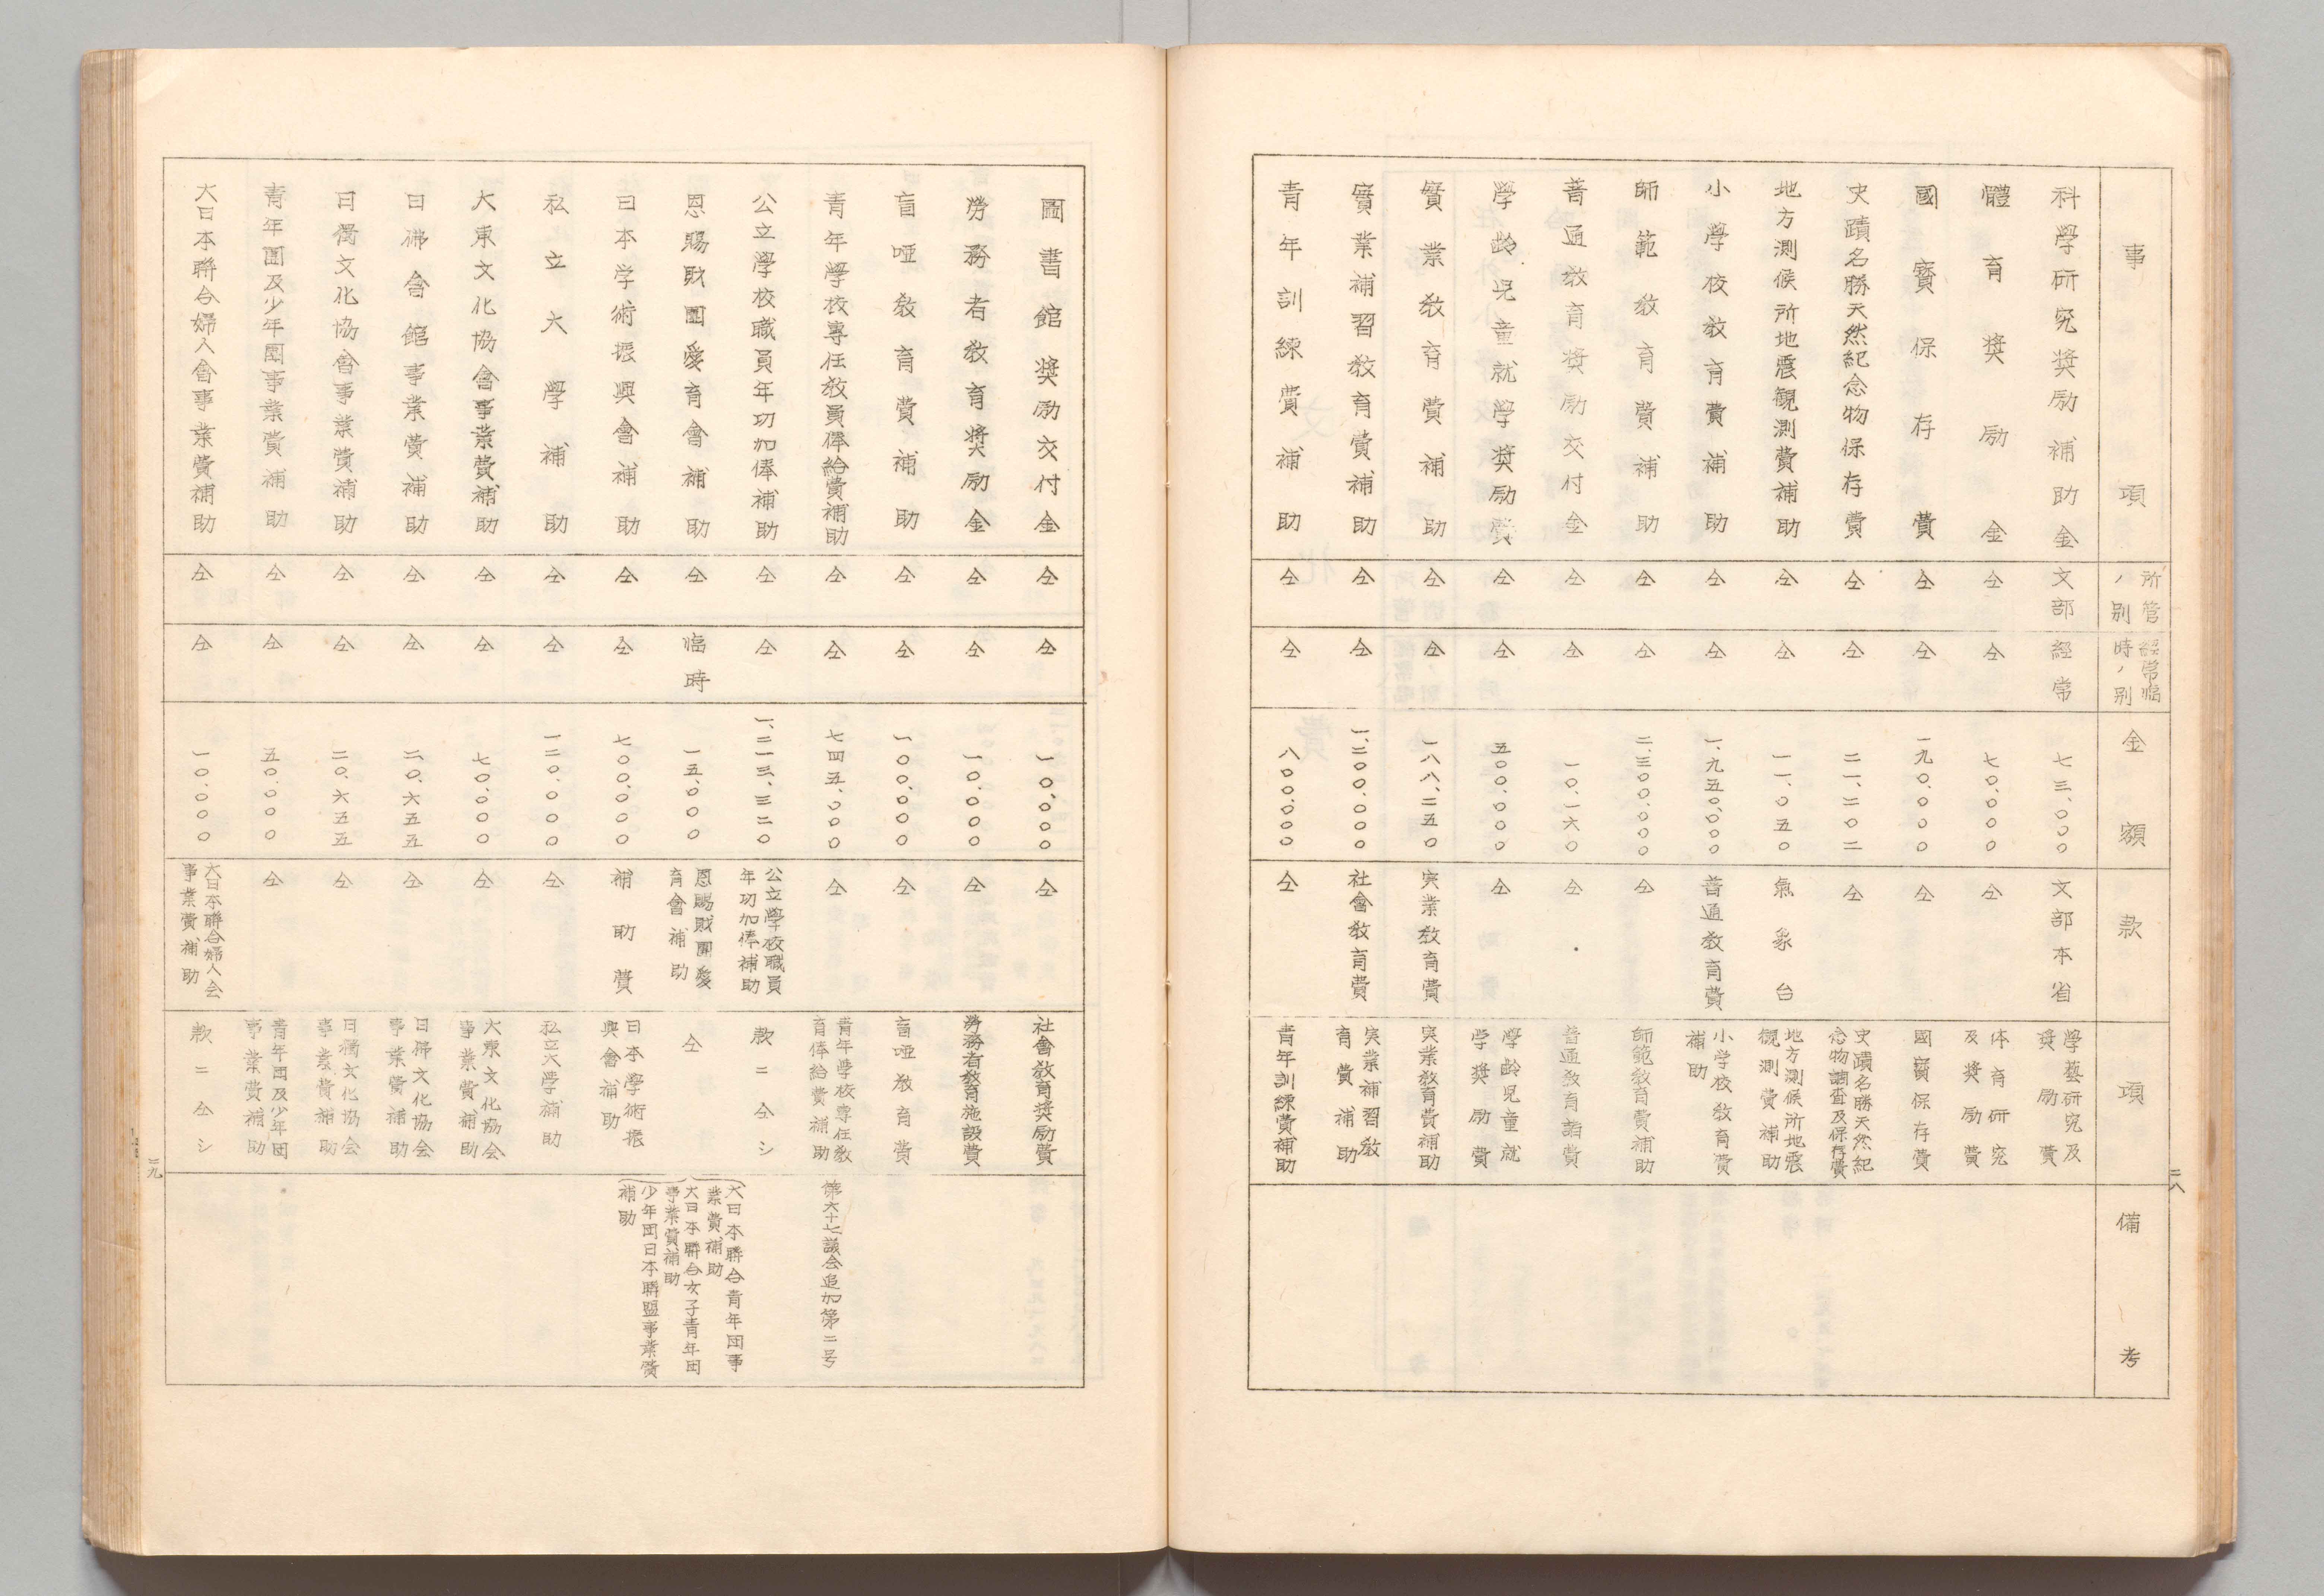 事項
所管ノ別
経常臨時ノ別
金額
款
項
備考
科學研究奨励補助金
文部
経常
七三、〇〇〇
文部本省
學藝研究及奨励費
體育奨励金
仝
仝
七〇、〇〇〇
仝
体育研究及奨励費
國寳保存費
仝
仝
一九〇、〇〇〇
仝
國寳保存費
史蹟名勝天然紀念物保存費
仝
仝
二一、二〇二
仝
史蹟名勝天然紀念物調査及保存費
地方測候所地震観測費補助
仝
仝
一一、〇五〇
氣象台
地方測候所地震観測費補助
小學校教育費補助
仝
仝
一、九五〇、〇〇〇
普通教育費
小学校教育費補助
師範教育費補助
仝
仝
二、三〇〇、〇〇〇
仝
師範教育費補助
普通教育奨励交付金
仝
仝
一〇、一六〇
仝
普通教育諸費
學齢児童就学奨励費
仝
仝
五〇〇、〇〇〇
仝
學齢児童就学奨励費
實業教育費補助
仝
仝
一八八、二五〇
実業教育費
実業教育費補助
實業補習教育費補助
仝
仝
一、二〇〇、〇〇〇
社會教育費
実業補習教育費補助
青年訓練費補助
仝
仝
八〇〇、〇〇〇
仝
青年訓練費補助
二八
圖書館奨励交付金
仝
仝
一〇、〇〇〇
仝
社會教育奨励費
勞務者教育奨励金
仝
仝
一〇、〇〇〇
仝
勞務者教育施設費
盲唖教育費補助
仝
仝
一〇〇、〇〇〇
仝
盲唖教育費
青年學校專任教員俸給費補助
仝
仝
七四五、〇〇〇
仝
青年学校専任教育俸給費補助
第六十七議会追加第二号
公立學校職員年功加俸補助
仝
仝
一、二一三、三二〇
公立學校職員年功加俸補助
款ニ仝シ
恩賜財團愛育會補助
仝
臨時
一五、〇〇〇
恩賜財團愛育會補助
仝
日本学術振興會補助
仝
仝
七〇〇、〇〇〇
補助費
日本學術振興會補助
私立大學補助
仝
仝
一二〇、〇〇〇
仝
私立大学補助
大東文化協會事業費補助
仝
仝
七〇、〇〇〇
仝
大東文化協会事業費補助
日佛會館事業費補助
仝
仝
二〇、六五五
仝
日佛文化協会事業費補助
日獨文化協會事業費補助
仝
仝
二〇、六五五
仝
日獨文化協会事業費補助
青年團及少年團事業費補助
仝
仝
五〇、〇〇〇
仝
青年団及少年団事業費補助
大日本聯合青年団事業費補助
大日本聯合女子青年団事業費補助
少年団日本聯盟事業費補助
大日本聯合婦人會事業費補助
仝
仝
一〇、〇〇〇
大日本聯合婦人会事業費補助
款ニ仝シ
二九